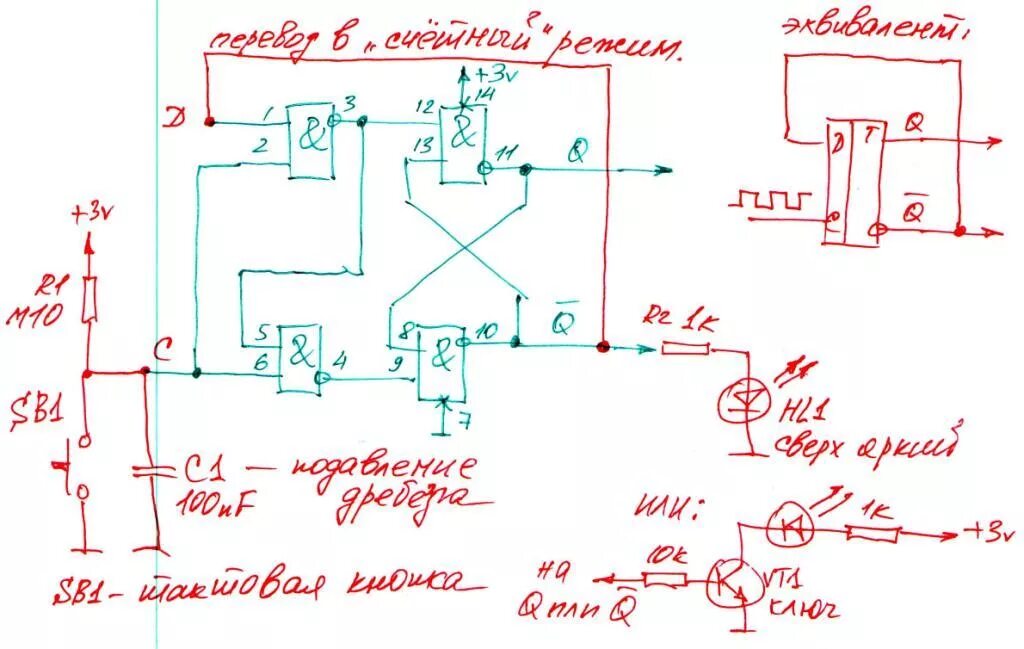 перевод в „счётный" режим.
эквивалент:
+3v
14
Д
1
2
&
3
12
13
&
11
Q
D
T
Q
C
Q̅
+3v
R1
м10
C
5
6
&
4
8
9
&
10
7
Q̅
R2 1к
HL1
сверх яркий
SB1
C1 — подавление
100nF дребезга
SB1 - тактовая кнопка
или:
на
Q или Q̅
10к
VT1
ключ
1к
+3v